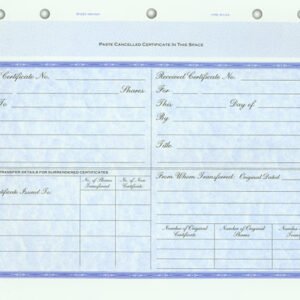 Paste Cancelled Certificate In This Space
Certificate No.
Shares
To
Received Certificate No.
For
This Day of
By
Title:
Transfer Details for Surrendered Certificates
No. of Shares
Transferred
Certificate Issued To:
From Whom Transferred: Original Dated
Number of Original
Certificate
Number of Original
Shares
Number
Trans